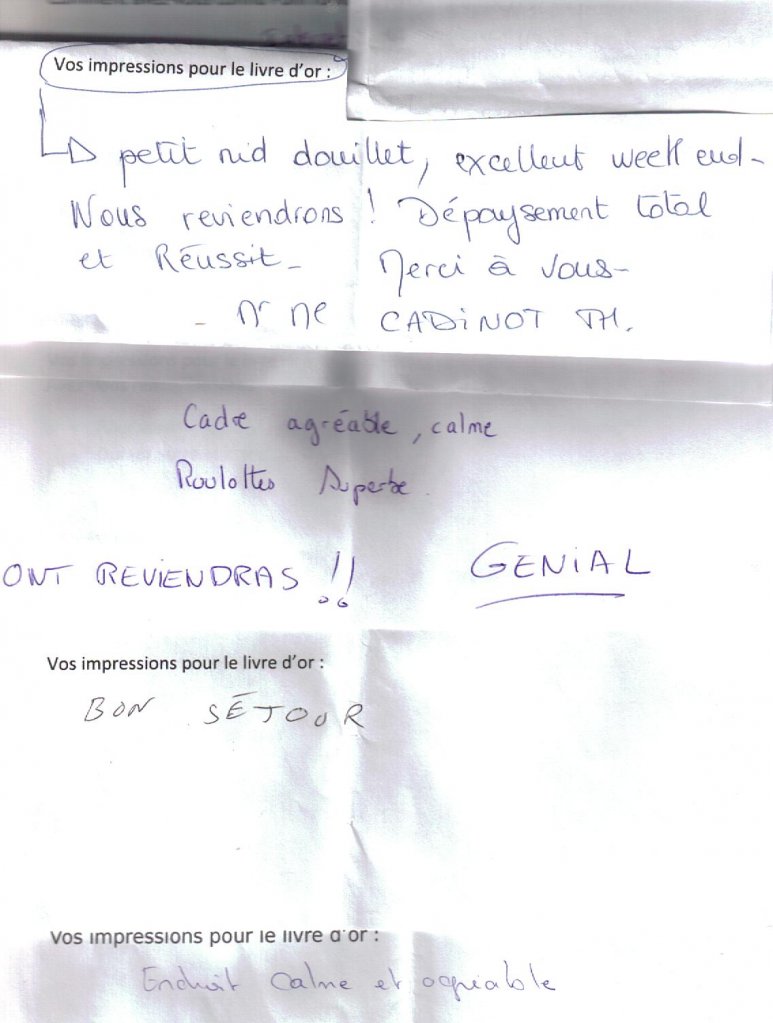 Vos impressions pour le livre d'or :
petit nid douillet, excellent week end-
Nous reviendrons ! Dépaysement total
et Réussit- Merci à vous-
- Mr Me CADINOT TH.
Cadre agréable, calme
Roulottes Superbe
ONT REVIENDRAS !! GENIAL
Vos impressions pour le livre d'or :
BON SÉJOUR
Vos impressions pour le livre d'or :
Endroit calme et agréable